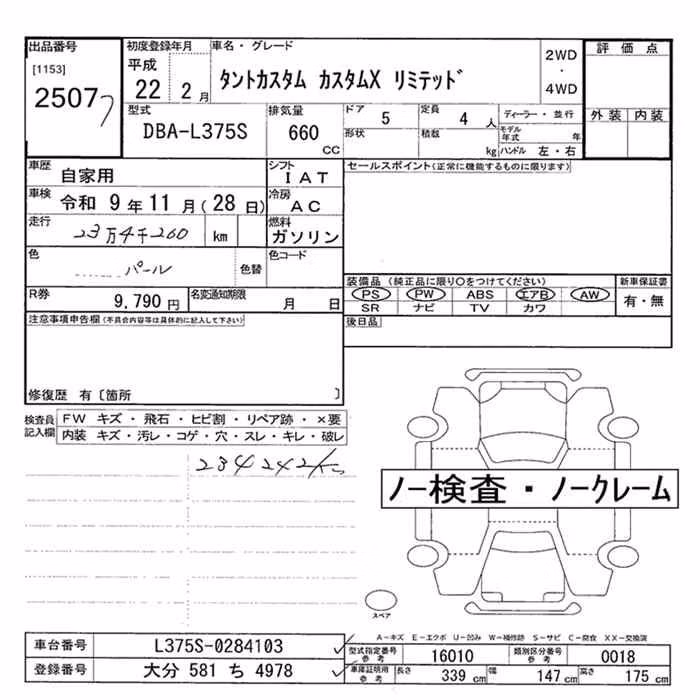 出品番号
[1153]
25077
初度登録年月
平成
22 2 月
車名・グレード
タントカスタム カスタムX リミテッド
2WD
・
4WD
評価点
外装 内装
型式
DBA-L375S
排気量
660 CC
ドア 5
形状
定員 4 人
積載 kg
ディーラー・並行
モデル年式 年
ハンドル 左・右
車歴 自家用
シフト IAT
車検 令和 9 年 11 月 ( 28 日)
冷房 AC
走行 23万4千260 km
燃料 ガソリン
色 パール 色替
色コード
R券 9,790 円
名変通知期限 月 日
セールスポイント(正常に機能するものに限ります)
装備品 (純正品に限り○をつけてください)
PS PW ABS エアB AW
SR ナビ TV カワ
新車保証書
有・無
後日品
注意事項申告欄(不具合内容等は具体的に記入して下さい)
修復歴 有〔箇所 〕
検査員記入欄
FW キズ・飛石・ヒビ割・リペア跡・×要
内装 キズ・汚レ・コゲ・穴・スレ・キレ・破レ
234242km
ノー検査・ノークレーム
スペア
A-キズ E-エクボ U-凹み W-補修跡 S-サビ C-腐食 XX-交換済
車台番号 L375S-0284103
登録番号 大分 581 ち 4978
型式指定番号 参考 16010
類別区分番号 参考 0018
車庫証明用 参考 長さ 339 cm 幅 147 cm 高さ 175 cm